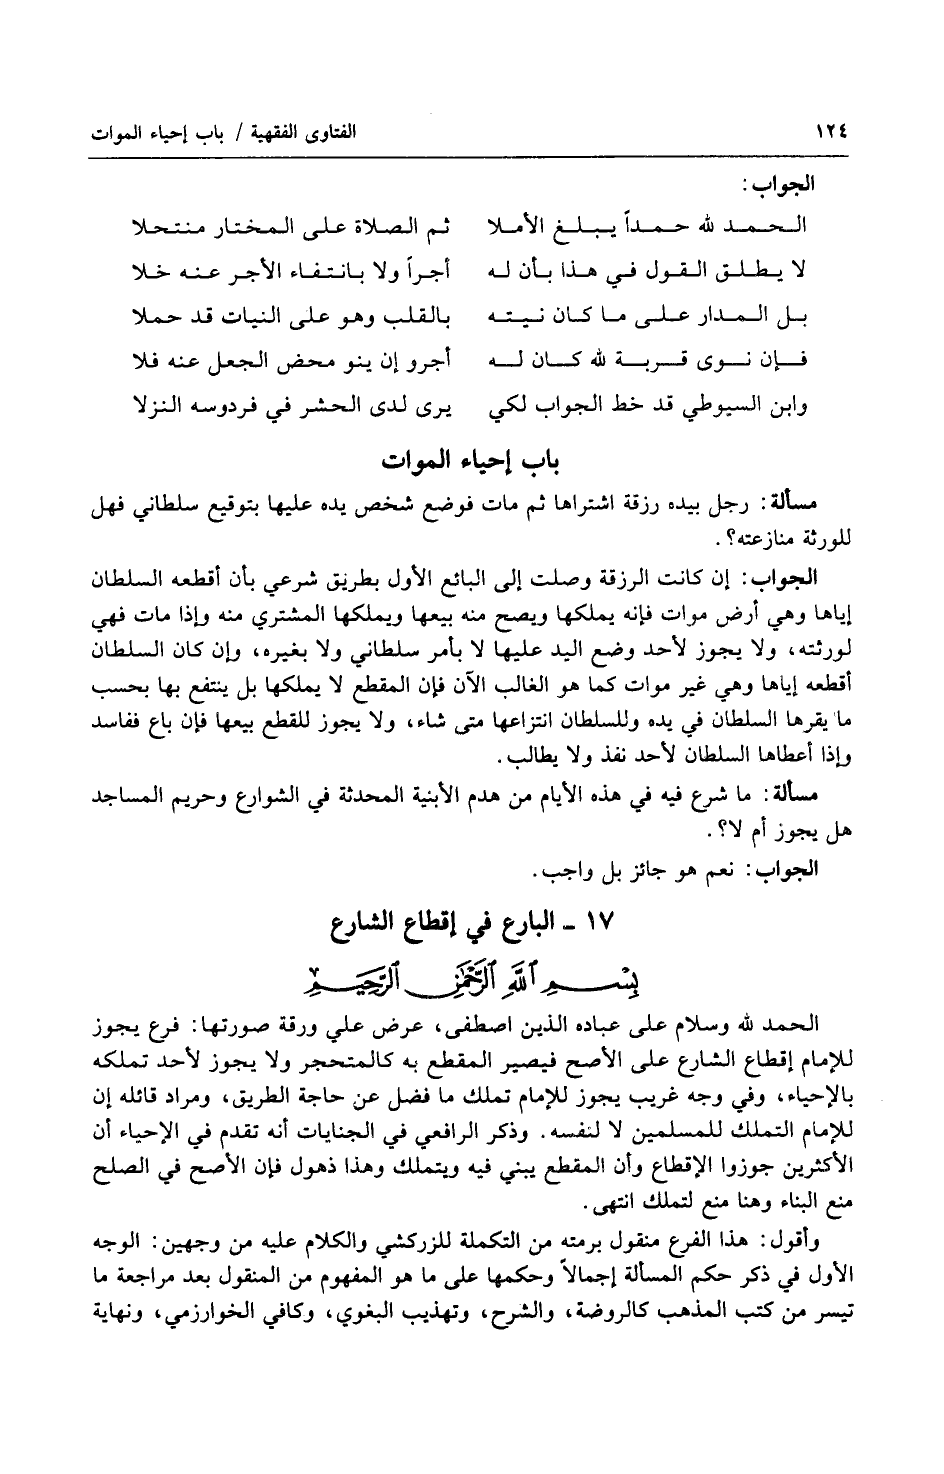 ١٢٤ الفتاوى الفقهية / باب إحياء الموات
الجواب:
الحمد لله حمداً يبلغ الأملا ثم الصلاة على المختار منتحلا
لا يطلق القول في هذا بأن له أجراً ولا بانتفاء الأجر عنه خلا
بل المدار على ما كان نيته بالقلب وهو على النيات قد حملا
فإن نوى قربة لله كان له أجرو إن ينو محض الجعل عنه فلا
وابن السيوطي قد خط الجواب لكي يرى لدى الحشر في فردوسه النزلا
باب إحياء الموات
مسألة: رجل بيده رزقة اشتراها ثم مات فوضع شخص يده عليها بتوقيع سلطاني فهل
للورثة منازعته؟.
الجواب: إن كانت الرزقة وصلت إلى البائع الأول بطريق شرعي بأن أقطعه السلطان
إياها وهي أرض موات فإنه يملكها ويصح منه بيعها ويملكها المشتري منه وإذا مات فهي
لورثته، ولا يجوز لأحد وضع اليد عليها لا بأمر سلطاني ولا بغيره، وإن كان السلطان
أقطعه إياها وهي غير موات كما هو الغالب الآن فإن المقطع لا يملكها بل ينتفع بها بحسب
ما يقرها السلطان في يده وللسلطان انتزاعها متى شاء، ولا يجوز للقطع بيعها فإن باع ففاسد
وإذا أعطاها السلطان لأحد نفذ ولا يطالب.
مسألة: ما شرع فيه في هذه الأيام من هدم الأبنية المحدثة في الشوارع وحريم المساجد
هل يجوز أم لا؟.
الجواب: نعم هو جائز بل واجب.
١٧ - البارع في إقطاع الشارع
بِسْمِ ٱللَّهِ ٱلرَّحْمَٰنِ ٱلرَّحِيمِ
الحمد لله وسلام على عباده الذين اصطفى، عرض علي ورقة صورتها: فرع يجوز
للإمام إقطاع الشارع على الأصح فيصير المقطع به كالمتحجر ولا يجوز لأحد تملكه
بالإحياء، وفي وجه غريب يجوز للإمام تملك ما فضل عن حاجة الطريق، ومراد قائله إن
للإمام التملك للمسلمين لا لنفسه. وذكر الرافعي في الجنايات أنه تقدم في الإحياء أن
الأكثرين جوزوا الإقطاع وأن المقطع يبني فيه ويتملك وهذا ذهول فإن الأصح في الصلح
منع البناء وهنا منع لتملك انتهى.
وأقول: هذا الفرع منقول برمته من التكملة للزركشي والكلام عليه من وجهين: الوجه
الأول في ذكر حكم المسألة إجمالاً وحكمها على ما هو المفهوم من المنقول بعد مراجعة ما
تيسر من كتب المذهب كالروضة، والشرح، وتهذيب البغوي، وكافي الخوارزمي، ونهاية